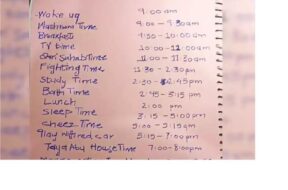 Woke up 9:00 am
Washroom Time 9:00 - 9:30am
Breakfast 9:30 - 10:00am
TV time 10:00 - 11:00am
Sahab Time 11:00 - 11:30am
Fighting Time 11:30 - 2:30pm
Study Time 2:30 - 2:45pm
Bath Time 2:45 - 3:15pm
Lunch 2:00 pm
Sleep Time 3:15 - 5:00pm
Cheez Time 5:00 - 5:15am
Play w/ red car 5:15 - 7:00pm
Taya Abu House Time 7:00-8:00pm